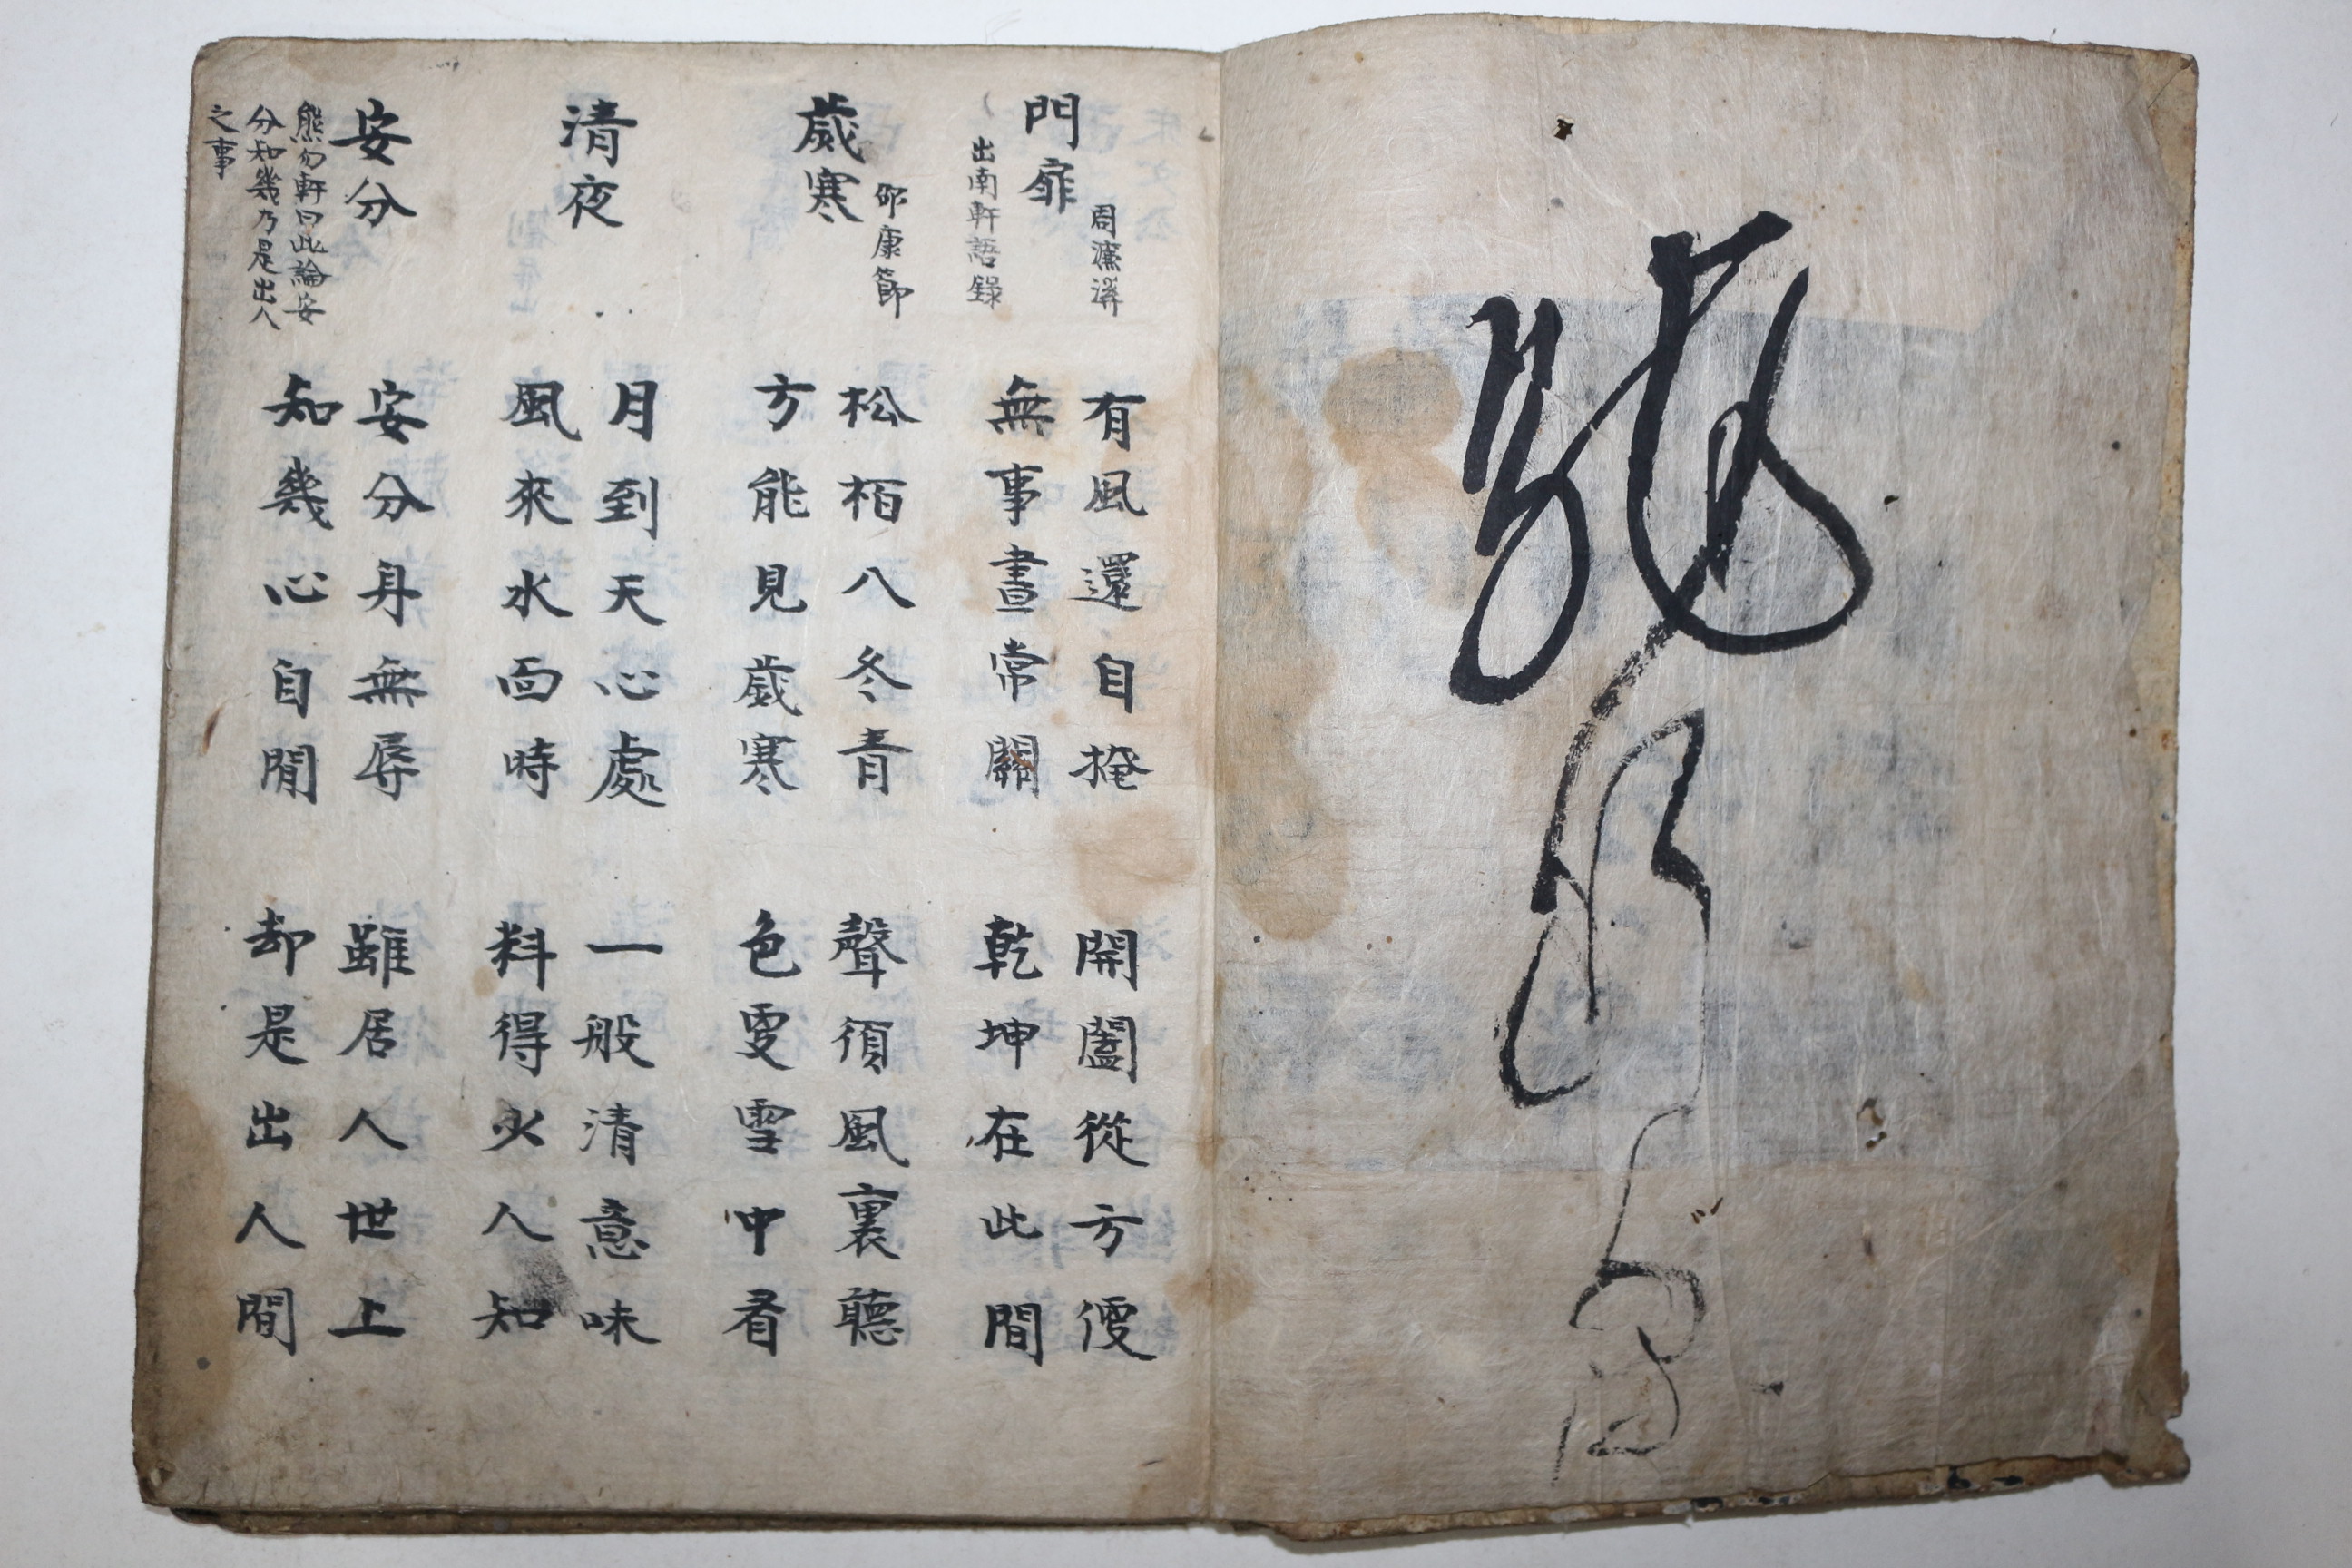 門扉
周濂溪
出南軒語錄
有風還自掩
無事晝常關
開闔從方便
乾坤在此間
歲寒
邵康節
松栢入冬青
方能見歲寒
聲須風裏聽
色更雪中看
清夜
月到天心處
風來水面時
一般清意味
料得少人知
安分
熊勿軒曰此論安
分知幾乃是出人
之事
安分身無辱
知幾心自閒
雖居人世上
却是出人間